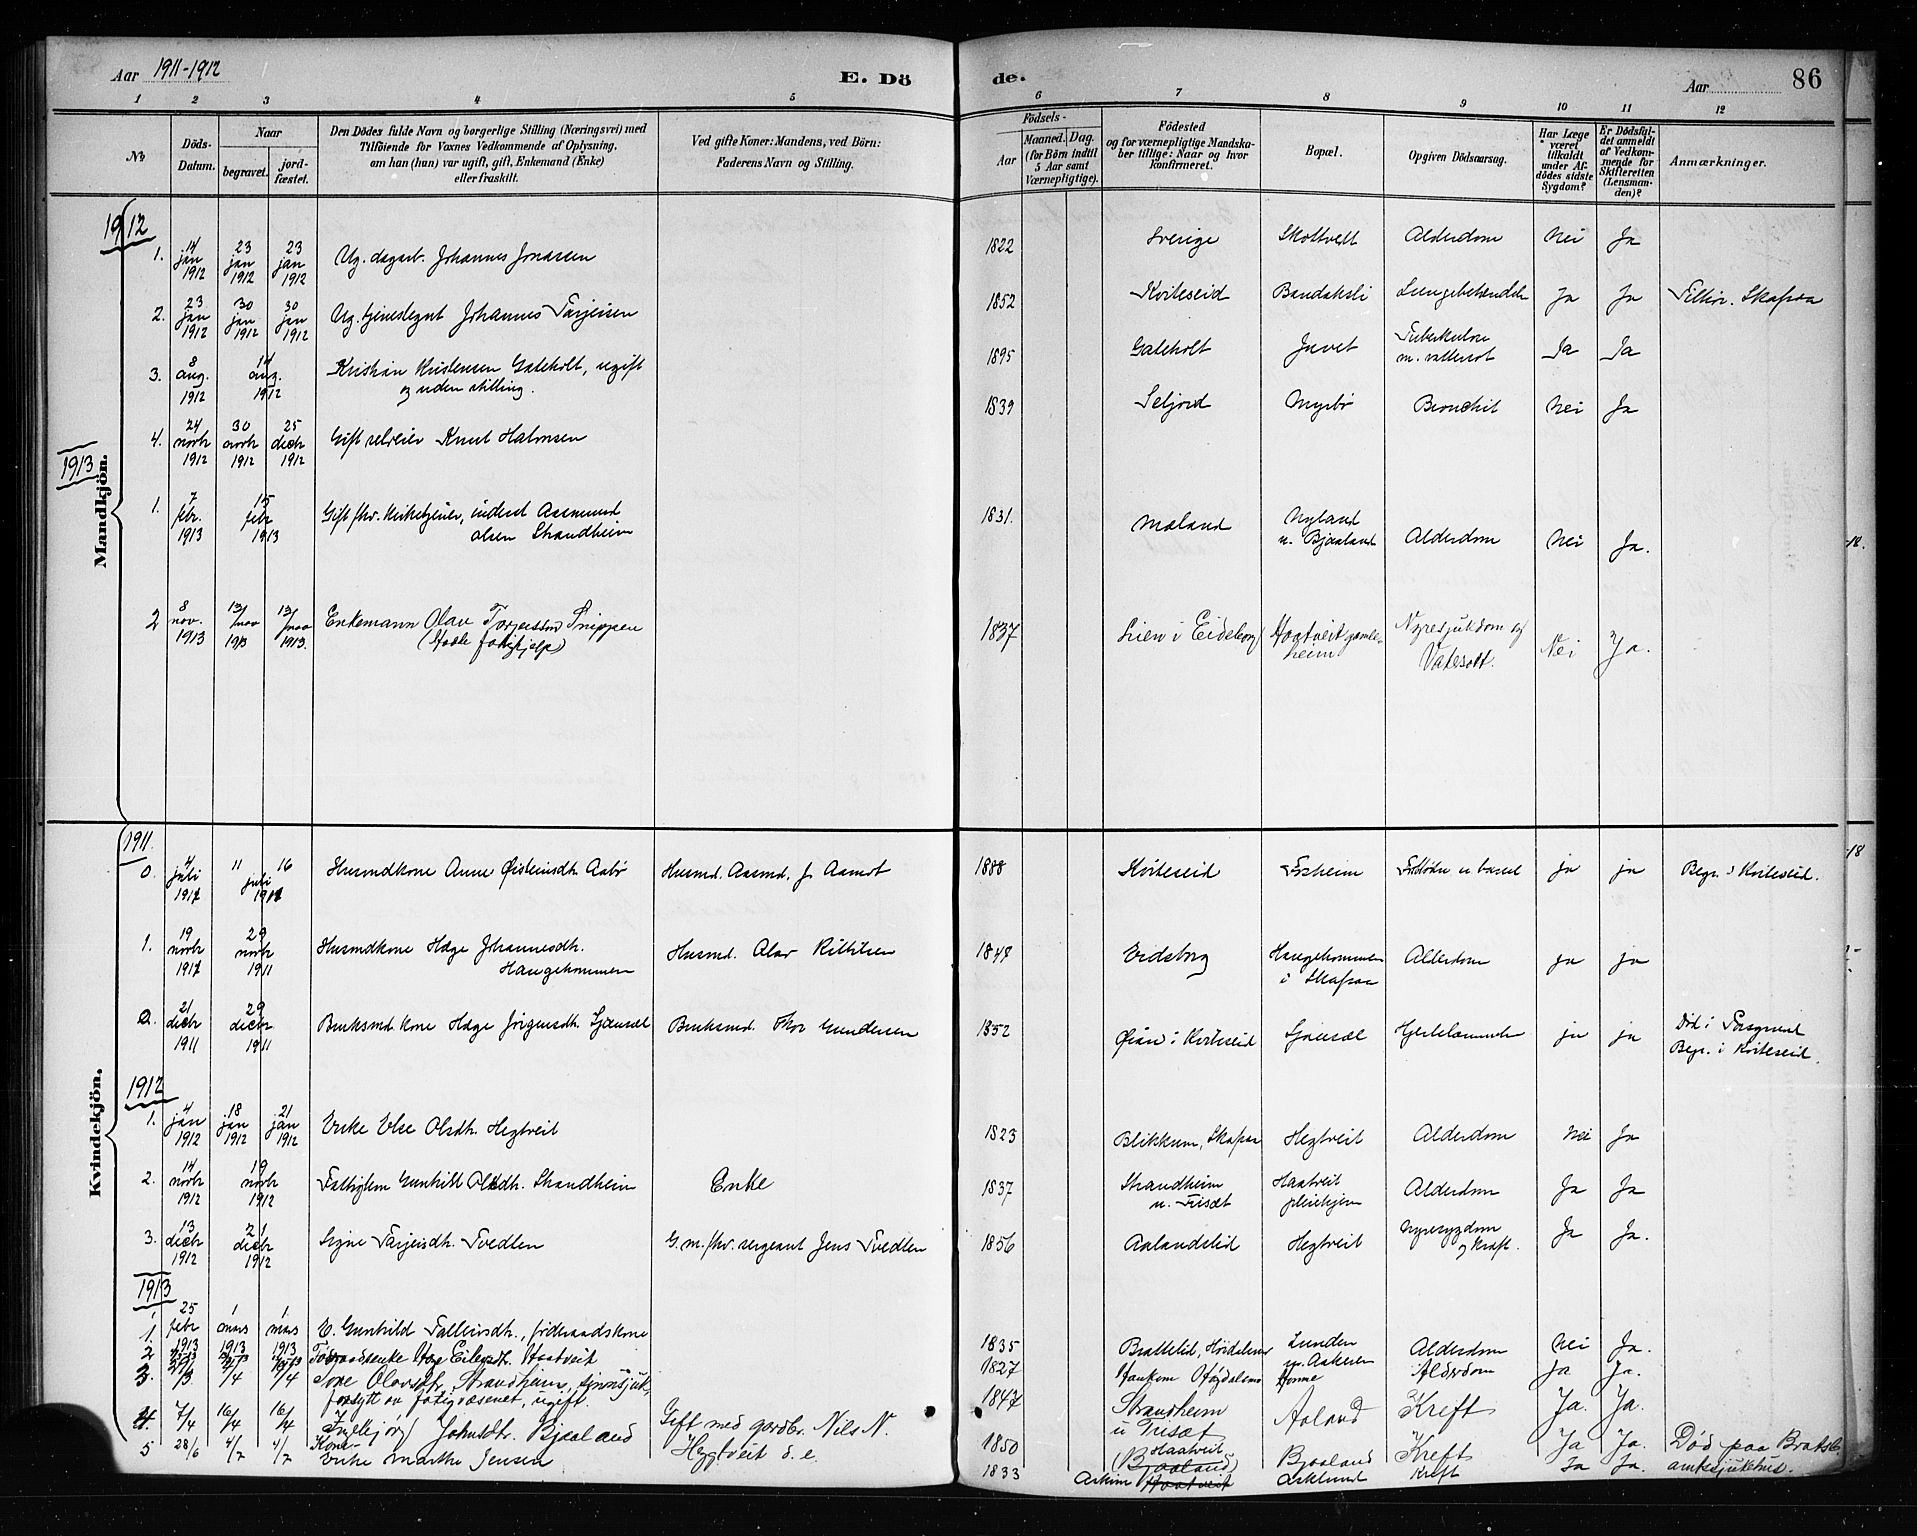 Aar 1911-1912 E. Dö de. Aar 86
1 2 3 4 5 6 7 8 9 10 11 12
No
Döds-Datum.
Naar
begravet.
jord-fæstet.
Den Dödes fulde Navn og borgerlige Stilling (Næringsvei) med
Tilföiende for Voxnes Vedkommende af Oplysning,
om han (hun) var ugift, gift, Enkemand (Enke)
eller fraskilt.
Ved gifte Koner: Mandens, ved Börn:
Faderens Navn og Stilling.
Födsels-
Aar
Maaned. Dag.
(for Börn indtil
5 Aar samt
Værnepligtige).
Födested
og for værnepligtige Mandska-
ber tillige: Naar og hvor
konfirmeret.
Bopæl.
Opgiven Dödsaarsag.
Har Læge
været
tilkaldt
under Af-
dödes sidste
Sygdom?
Er Dödsfal-
det anmeldt
af Vedkom-
mende for
Skifteretten
(Lensman-
den)?
Anmærkninger.
Mandkjön.
1912
1. 14 jan 1912 23 jan 1912 23 jan 1912 Ug. dagarb. Johannes Jonassen 1822 Sverige Skottvelt Alderdom Nei Ja
2. 23 jan 1912 30 jan 1912 30 jan 1912 Ug. tjenestegut Johannes Tarjeisen 1852 Kviteseid Bandaksli Lungebetændelse Ja Ja Tilhør. Skafsaa
3. 8 aug. 1912 14 aug. 1912 Kristian Kristensen Gateholt, ugift
og uden stilling. 1895 Gateholt Juvet Tuberkulose
m. vattersot Ja Ja
4. 24 novbr 1912 30 novbr 1912 25 decbr 1912 Gift selveier Knut Halvorsen 1839 Seljord Nyrbø Bronchit Nei Ja
1913
1. 7 febr. 1913 15 febr 1913 Gift fhv. kirketjener, inderst Aasmund
Olsen Strandheim 1831. Moland Nyland
u. Bjaaland Alderdom Nei Ja.
2 8 nov. 1913 13/nov 1913 13/nov 1913. Enkemann Olav Torjussen Snippen
(Hadde fatighjelp) 1837 Lien i Eidsborg Haatveit gamle-
heim Nyresjukdom og
Vatersott. Nei Ja.
Kvindekjön.
1911.
0. 4 juli 1911 11 16 juli 1911 Husmdkone Anne Øisteinsdtr. Aabø Husmd. Aasmd. J. Aamot 1888 Kviteseid Forheim ja ja Begr. i Kviteseid.
1. 19 novbr 1911 29 novbr 1911 Husmdkone Hæge Johannesdtr.
Haugekommen Husmd. Olav Kittilsen 1848 Eidsborg Haugekommen
i Skafsaa Alderdom ja ja
2. 21 decbr 1911 29 decbr 1911 Bruksmd. kone Hæge Jørgensdtr. Bruksmd. Thor Gundersen 1852 Øian i Kviteseid Hjertelammelse ja ja Død i
Begr. i Kviteseid.
1912
1. 4 jan 1912 18 jan 1912 21 jan 1912 Enke Else Olsdtr. Hegtveit 1823 Blikkum, Skafsaa Hegtveit Alderdom Nei Ja
2. 14 novbr 1912 19 novbr 1912 Fattiglem Gunhild Olsdtr. Strandheim Enke 1837 Strandheim
u. Trisæt Haatveit
pleiehjem Alderdom Ja Ja
3. 13 decbr 1912 21 decbr 1912 Signe Tarjeisdtr. Tvedten G.m. fhv. sergeant Jens Tvedten 1856 Aalandslid Hegtveit Nyresygdom
og kræft. Ja Ja.
1913
1. 25 febr 1913 1 mars 1913 1 mars 1913 E. Gunhild Talleivsdtr., 1835 Brattelid, Høidalsmo Lunden
u. Aakeren Alderdom Nei Ja.
2 Haatveit 1827 Alderdom Ja Ja.
3. /3 /4 /4 Tone Olavsdtr. Strandheim,
forsytt av fatigvæsenet, ugift. 1847 Strandheim
u Trisæt Aaland Kreft Ja. Ja.
4. 7/4 16/4 16/4 Johnsdtr. Bjaaland
Kone Gift med gardbr. Nils N.
Hegtveit s. e. 1850 Haatveit
(Bjaaland) Bjaaland Kreft Ja Ja. Død paa Bratsb.
amtssjukehus.
5 28/6 4/7 4/7 Enke Marthe Jensen 1833 Askim Haatveit Asklund Kreft Ja Ja.